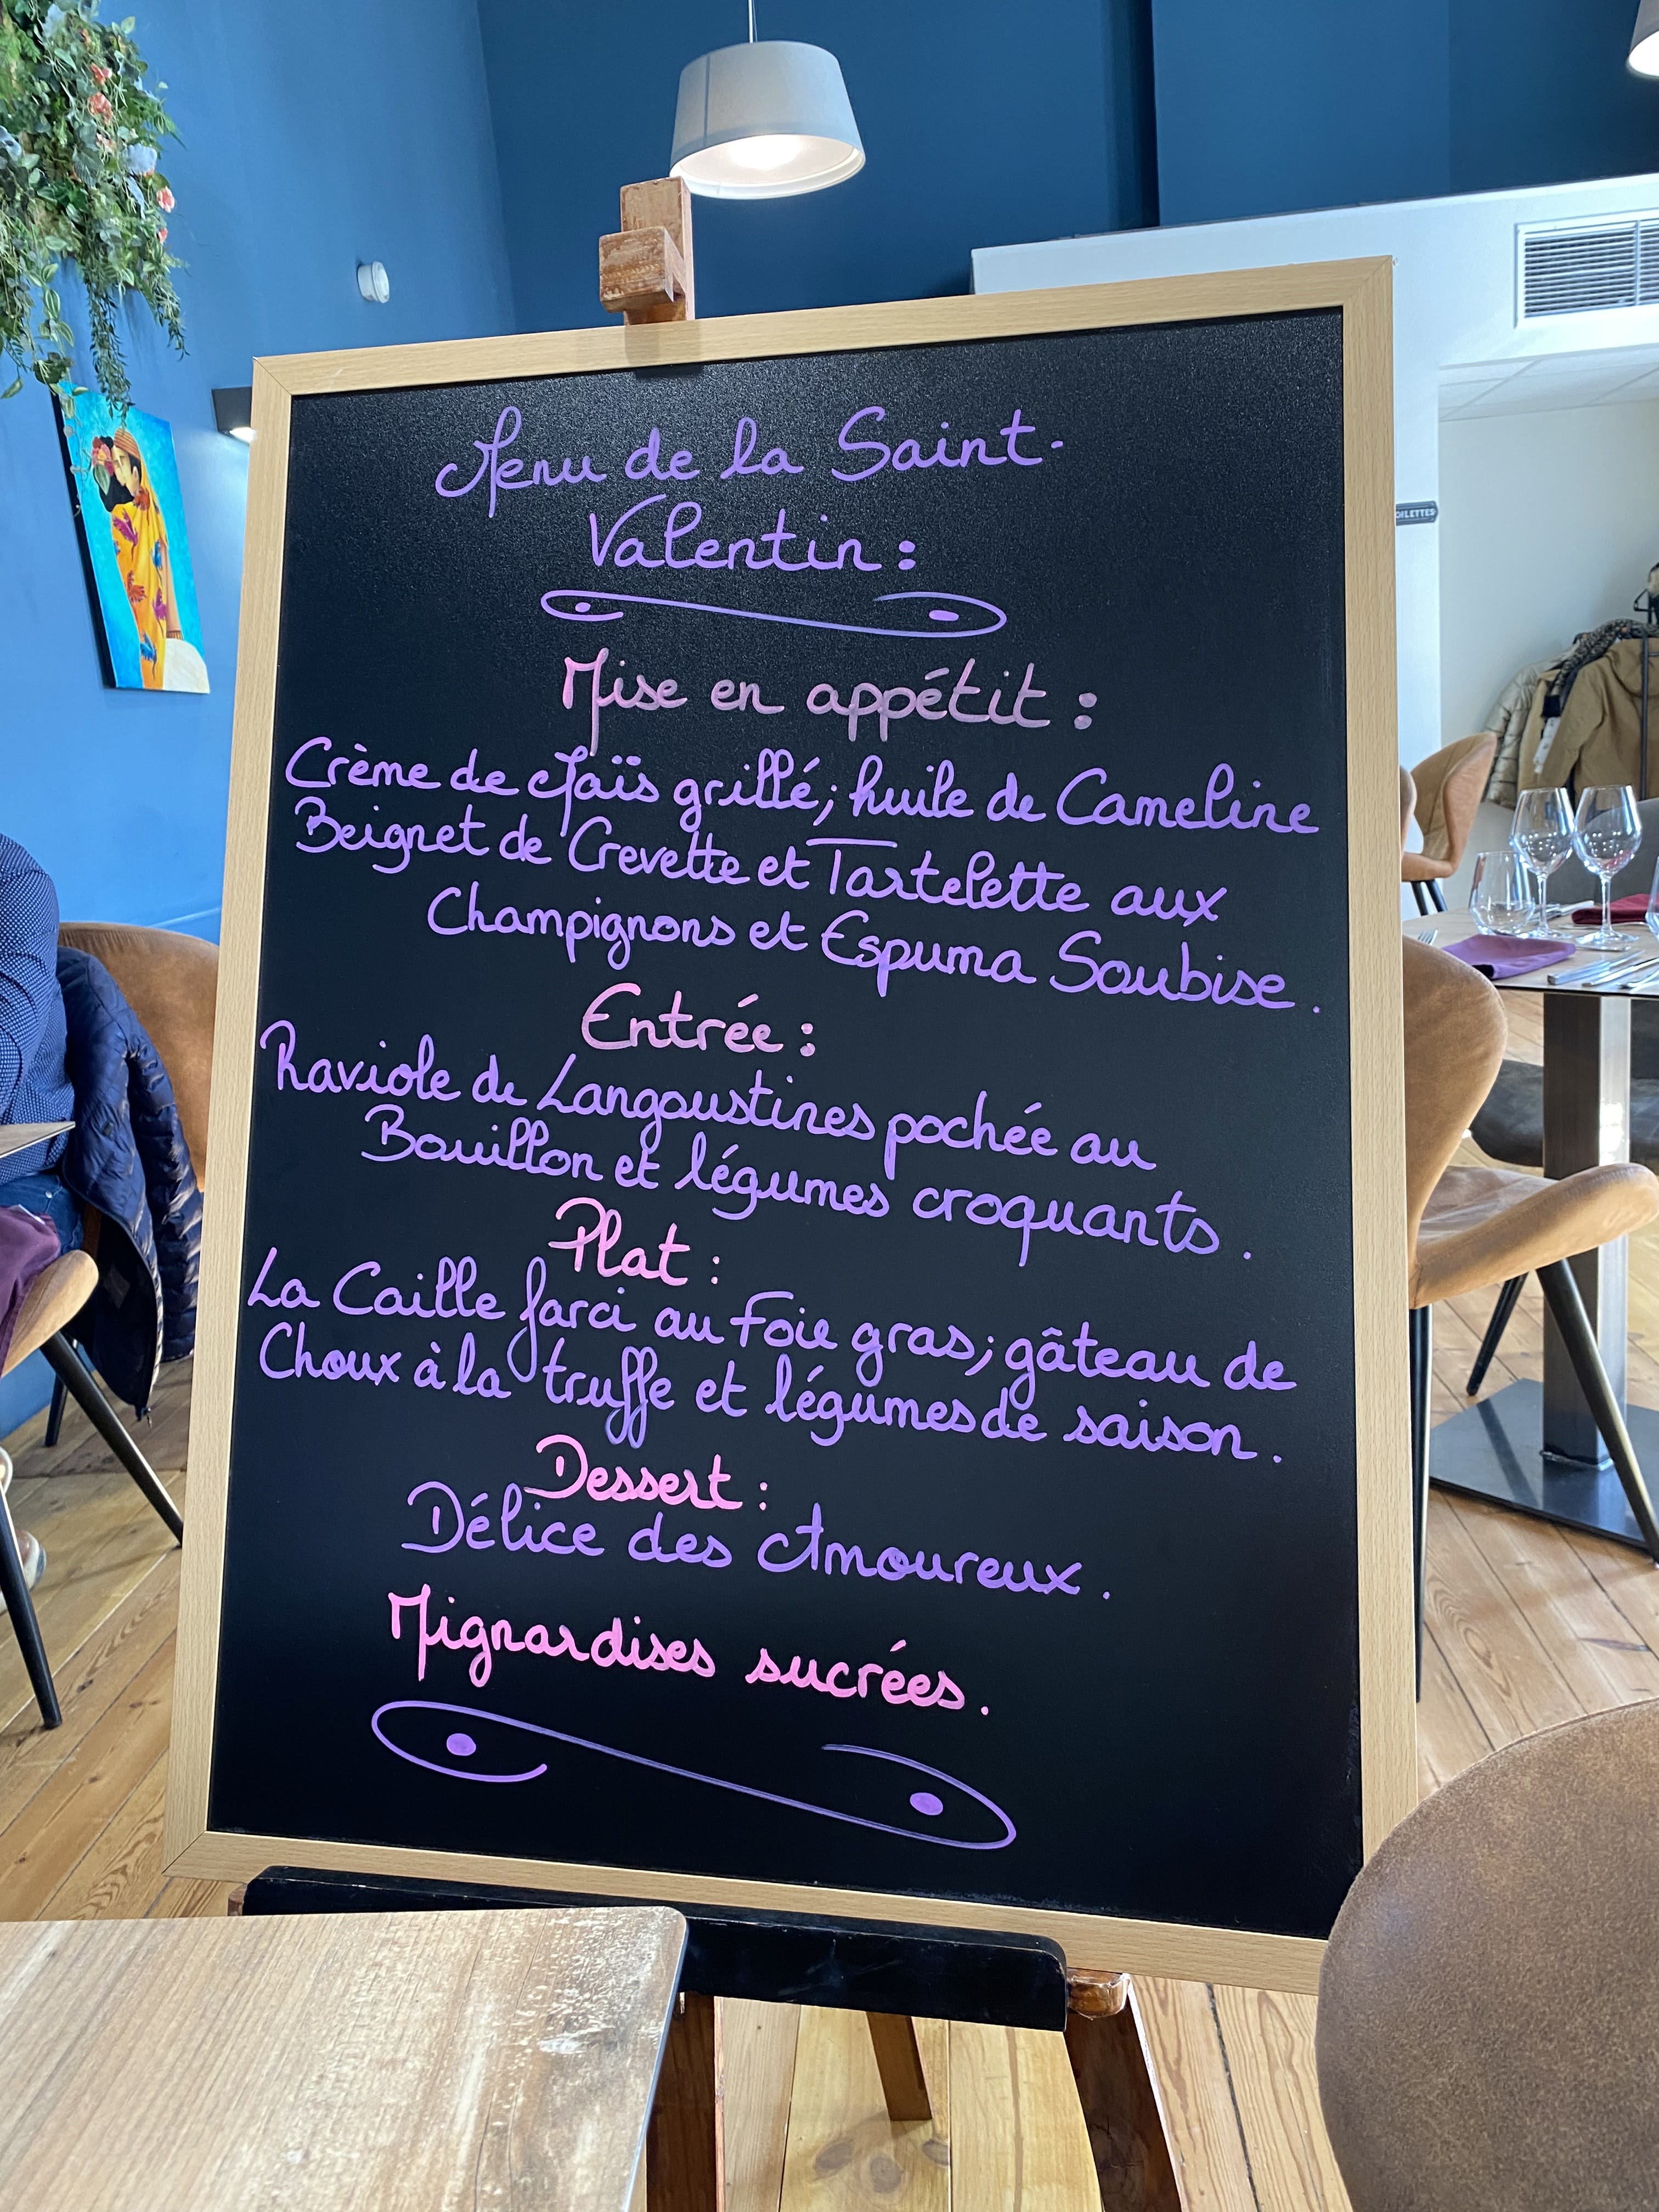 Menu de la Saint-
Valentin :
Mise en appétit :
Crème de Maïs grillé; huile de Cameline
Beignet de Crevette et Tartelette aux
Champignons et Espuma Soubise.
Entrée :
Raviole de Langoustines pochée au
Bouillon et légumes croquants.
Plat :
La Caille farci au Foie gras; gâteau de
Choux à la truffe et légumes de saison.
Dessert :
Délice des Amoureux.
Mignardises sucrées.
OILETTES